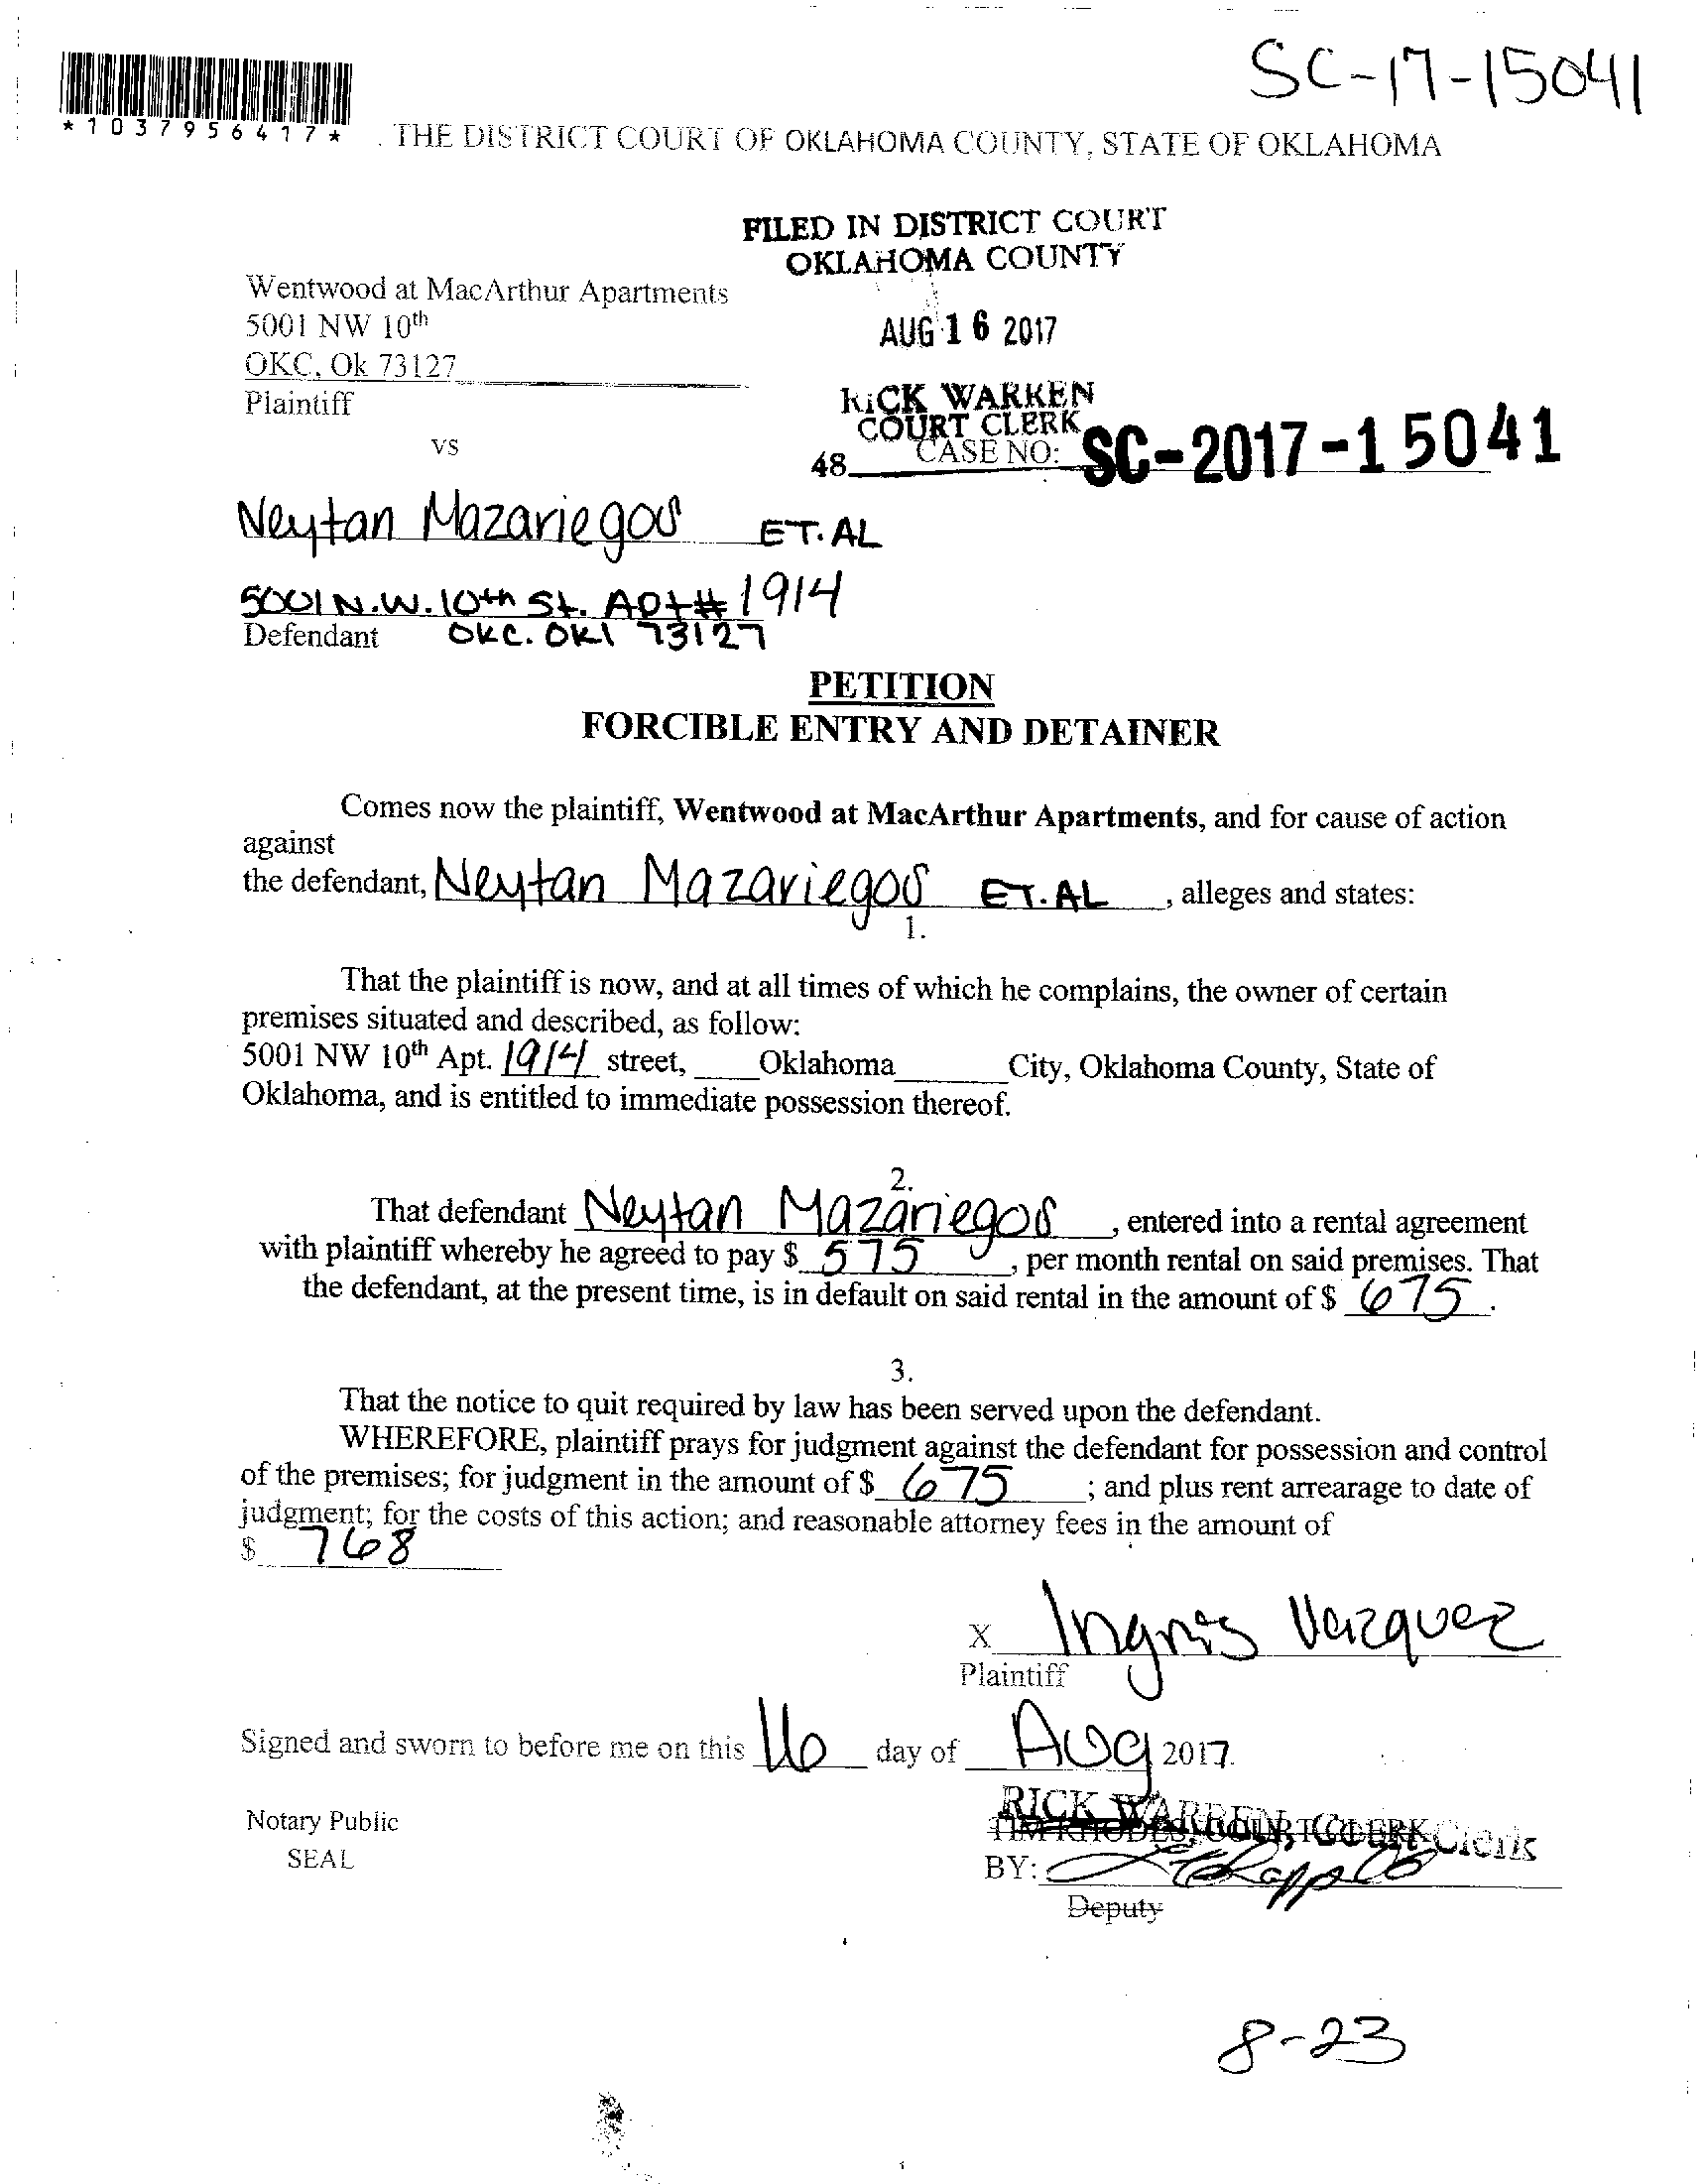 SC-17-15041
*1037956417*
THE DISTRICT COURT OF OKLAHOMA COUNTY, STATE OF OKLAHOMA
FILED IN DISTRICT COURT
OKLAHOMA COUNTY
Wentwood at MacArthur Apartments
5001 NW 10th
OKC, Ok 73127
Plaintiff
AUG 16 2017
RICK WARREN
COURT CLERK
vs
48
CASE NO: SC-2017-15041
Neytan Mazariegos ET.AL
5001 N.W. 10th St. Apt# 1914
Defendant OKC. OKl 73127
PETITION
FORCIBLE ENTRY AND DETAINER
Comes now the plaintiff, Wentwood at MacArthur Apartments, and for cause of action
against
the defendant, Neytan Mazariegos ET.AL, alleges and states:
1.
That the plaintiff is now, and at all times of which he complains, the owner of certain
premises situated and described, as follow:
5001 NW 10th Apt. 1914 street, Oklahoma City, Oklahoma County, State of
Oklahoma, and is entitled to immediate possession thereof.
2.
That defendant Neytan Mazariegos, entered into a rental agreement
with plaintiff whereby he agreed to pay $ 575, per month rental on said premises. That
the defendant, at the present time, is in default on said rental in the amount of $ 675.
3.
That the notice to quit required by law has been served upon the defendant.
WHEREFORE, plaintiff prays for judgment against the defendant for possession and control
of the premises; for judgment in the amount of $ 675; and plus rent arrearage to date of
judgment; for the costs of this action; and reasonable attorney fees in the amount of
$ 768
X Ingris Vazquez
Plaintiff
Signed and sworn to before me on this 16 day of Aug 2017.
RICK WARREN, Court Clerk
TIM RHODES, COURT CLERK
Notary Public
SEAL
BY:
Deputy
8-23